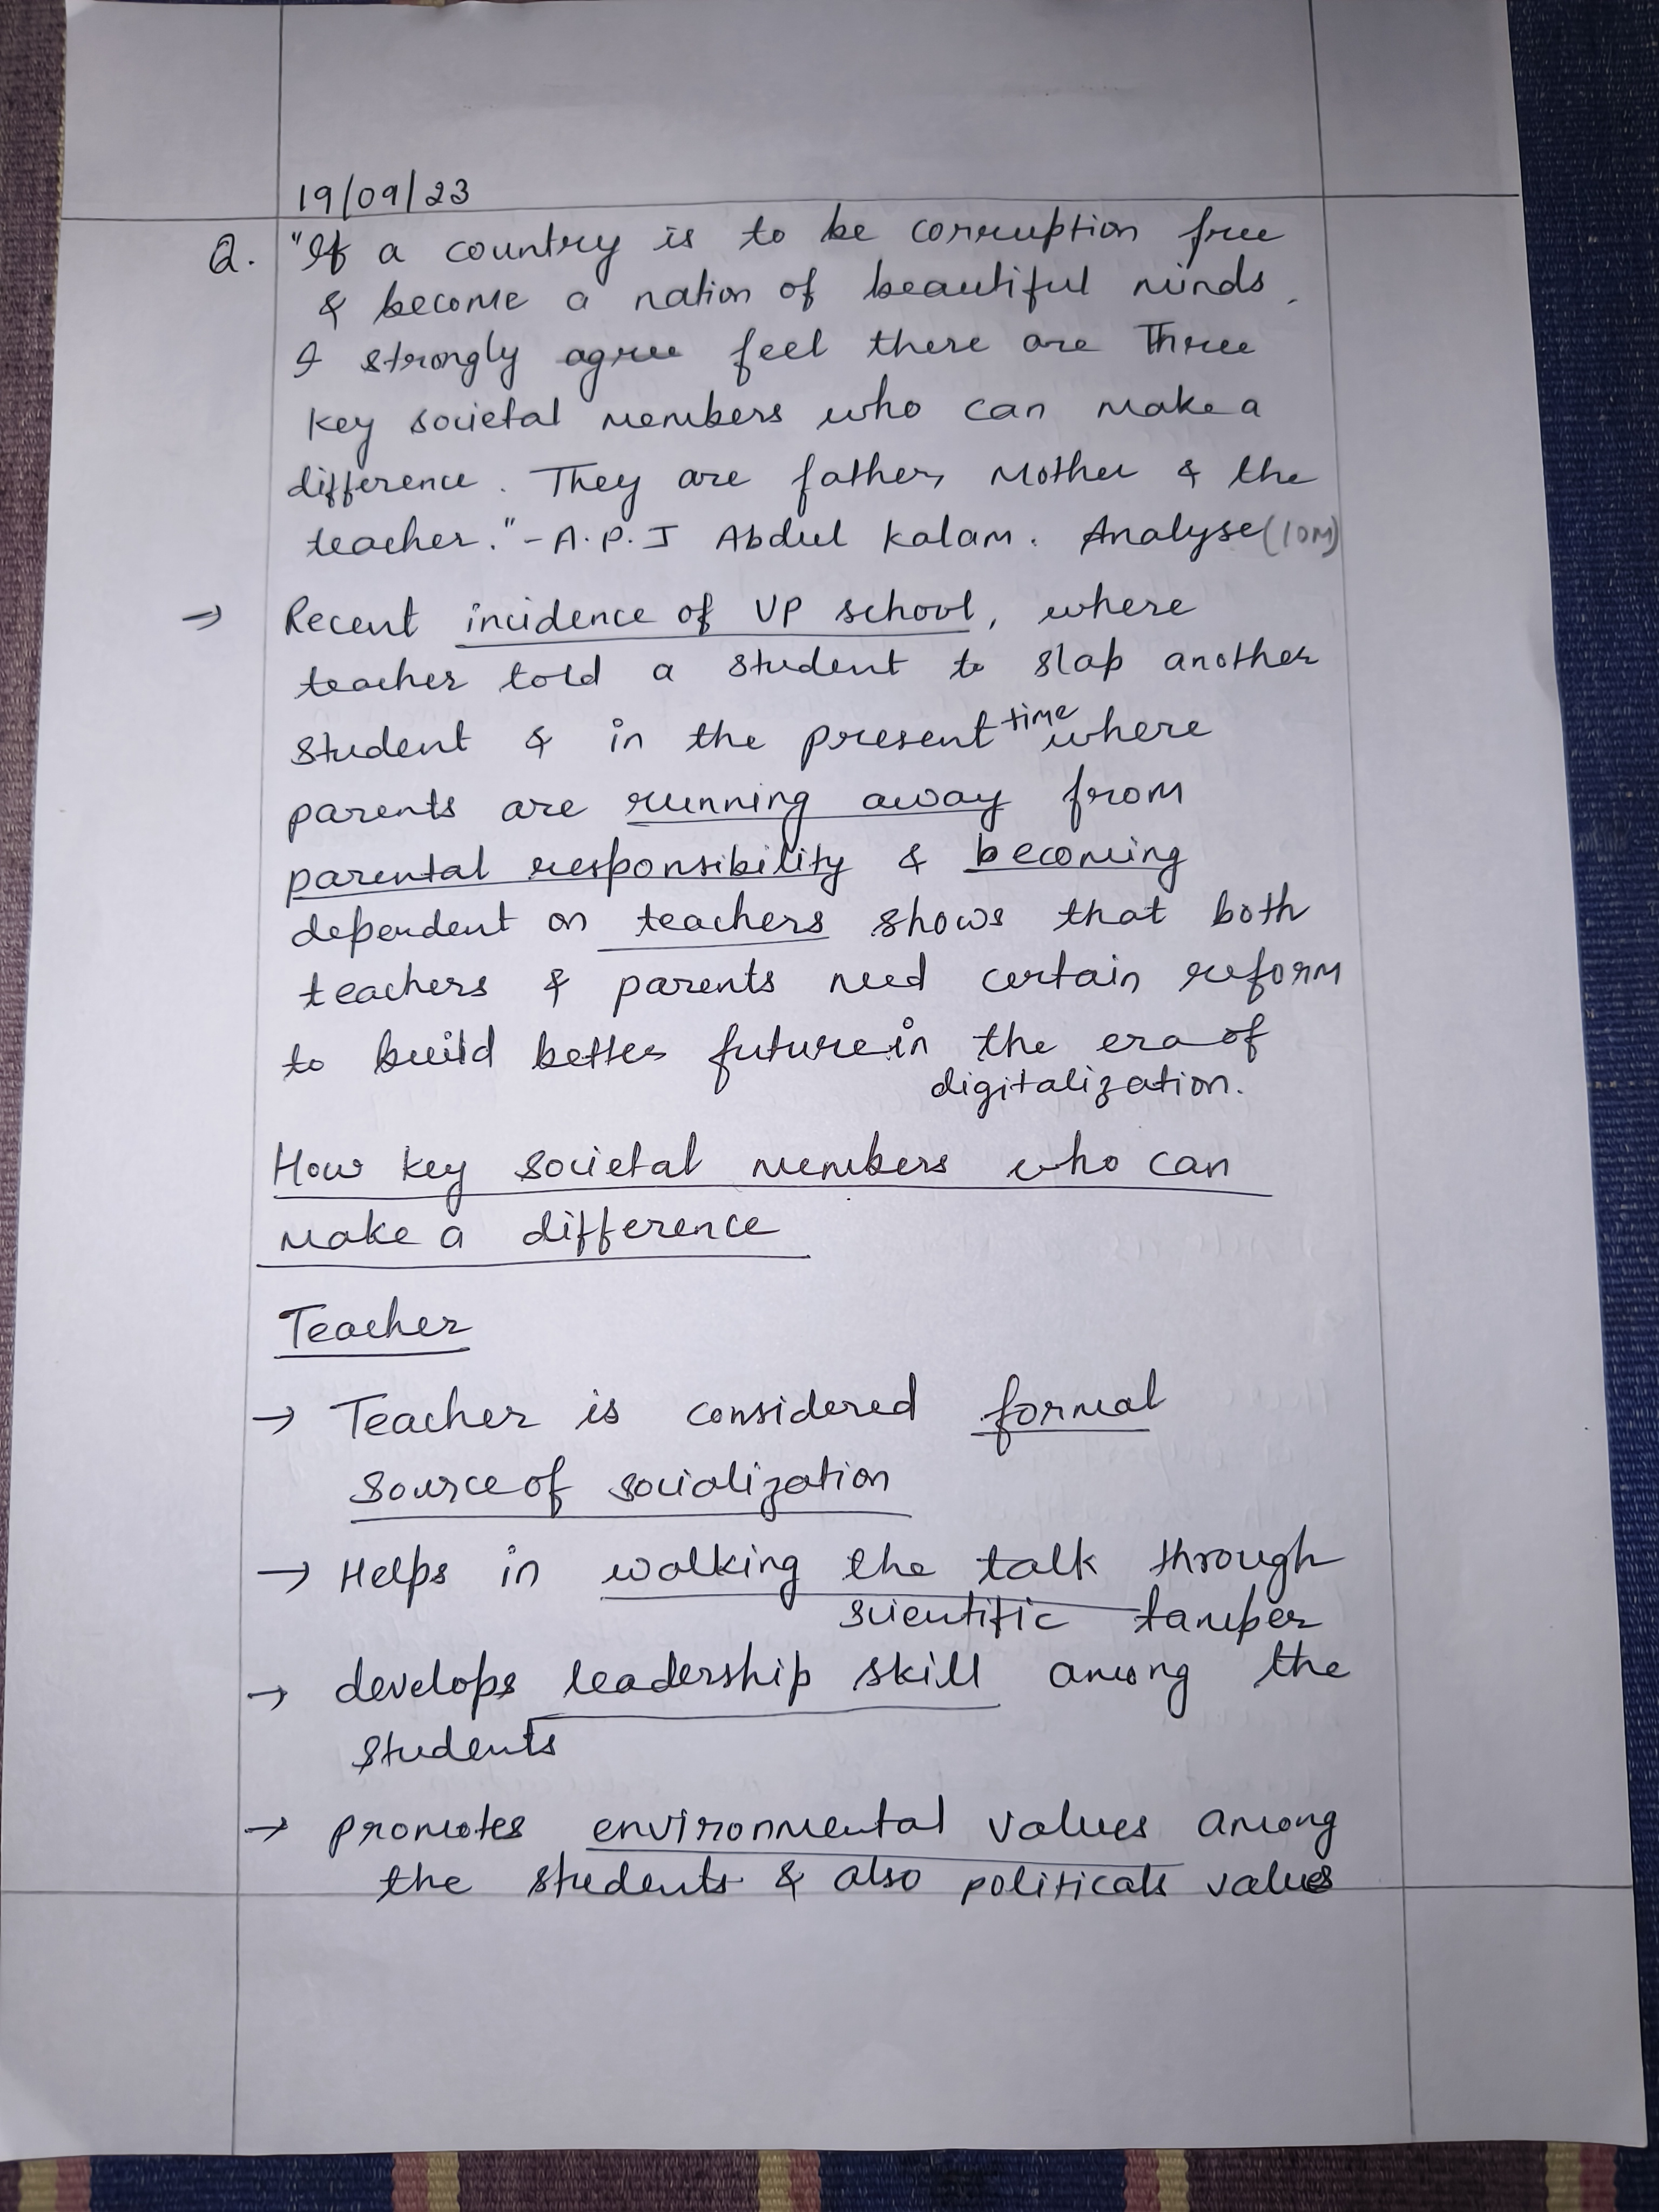 19/09/23
Q. "If a country is to be corruption free
& become a nation of beautiful minds,
I strongly agree feel there are Three
key societal members who can make a
difference. They are father, Mother & the
teacher." - A.P.J Abdul Kalam. Analyse (10M)
⇒ Recent incidence of UP school, where
teacher told a student to slap another
student & in the present time where
parents are running away from
parental responsibility & becoming
dependent on teachers shows that both
teachers & parents need certain reform
to build better future in the era of
digitalization.
How key societal members who can
make a difference
Teacher
→ Teacher is considered formal
source of socialization
→ Helps in walking the talk through
scientific tamper
→ develops leadership skill among the
students
→ promotes environmental values among
the students & also politicals values